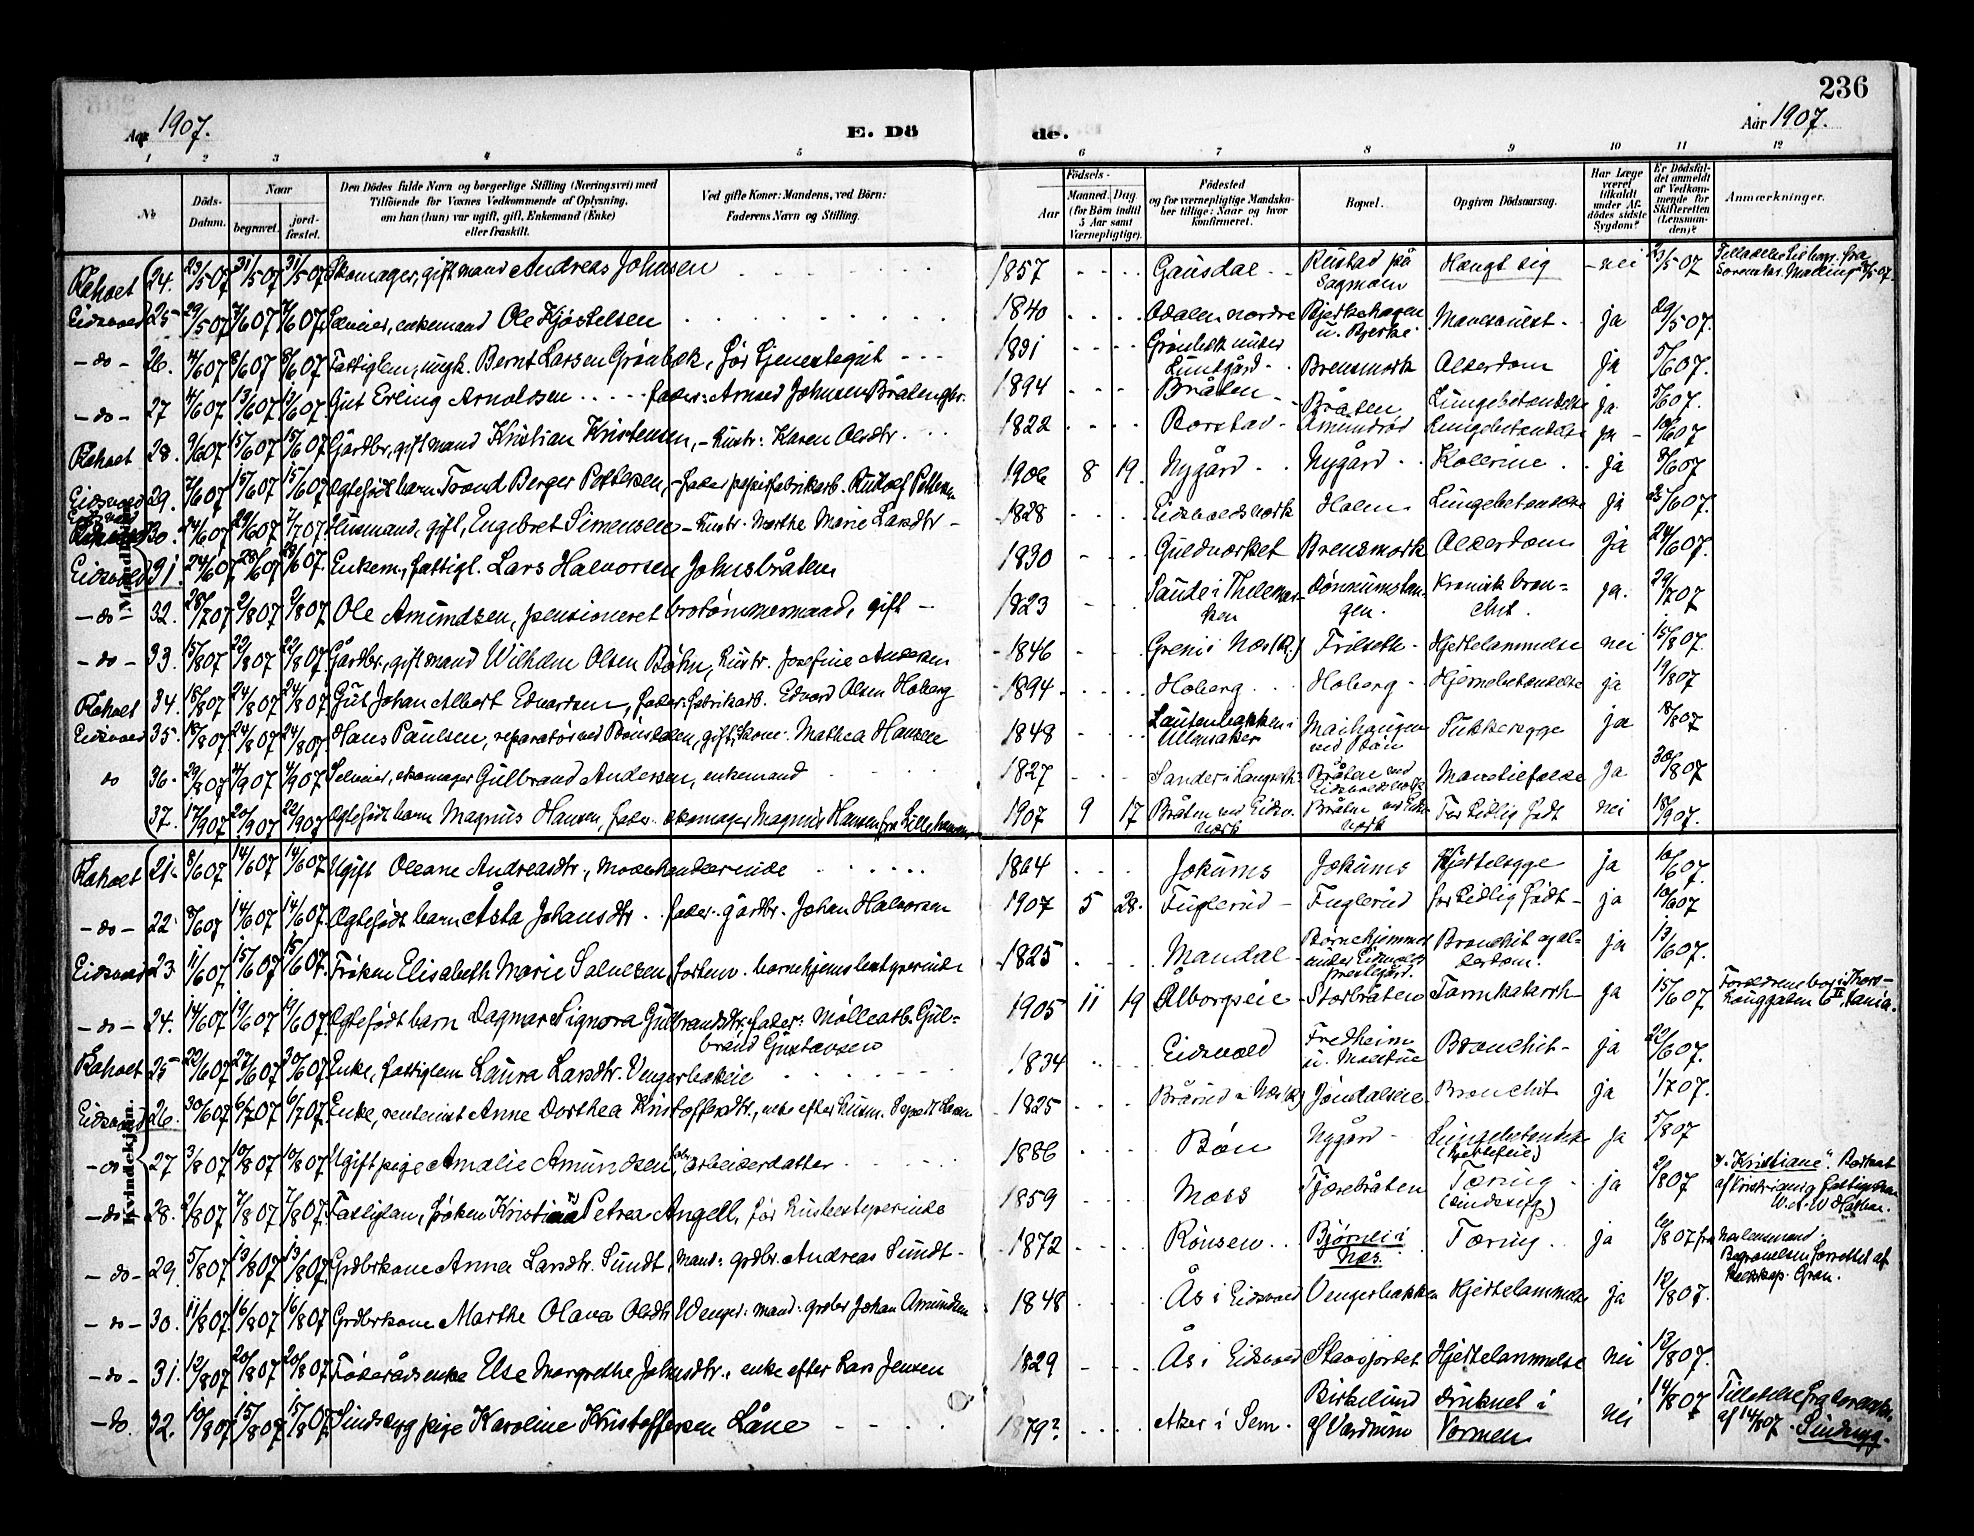 236
Aar 1907. E. Dö de. Aar 1907.
1 2 3 4 5 6 7 8 9 10 11 12
№ Döds-Datum. Naar begravet. jord-fæstet. Den Dödes fulde Navn og borgerlige Stilling (Næringsvei) med Tilföiende for Voxnes Vedkommende af Oplysning, om han (hun) var ugift, gift, Enkemand (Enke) eller fraskilt. Ved gifte Koner: Mandens, ved Börn: Faderens Navn og Stilling. Födsels- Aar Maaned. Dag. (for Börn indtil 5 Aar samt Værnepligtige). Födested og for værnepligtige Mandska-ber tillige: Naar og hvor konfirmeret. Bopæl. Opgiven Dödsaarsag. Har Læge været tilkaldt under Af-dödes sidste Sygdom? Er Dödsfal-det anmeldt af Vedkom-mende for Skifteretten (Lensman-den)? Anmærkninger.
Mandkjön.
Råholt 24. 23/5 07 31/5 07 31/5 07 Skomager, gift mand Andreas Johnsen 1857 Gausdal Rustad på Sagmoen Hængt sig nei 23/5 07
Eidsvold 25 29/5 07 7/6 07 7/6 07 Selveier, enkemand Ole Kjöstelsen 1840 Odalen nordre Bjerkehagen u. Bjerke Mavesaust ja 29/5 07.
- do - 26. 4/6 07 8/6 07 8/6 07 Fattiglem, ungk. Bernt Larsen Grönbæk, för tjenestegut 1831 Grönbæk under Lundgård Brensmork Alderdom ja 5/6 07.
- do - 27 4/6 07 13/6 07 13/6 07 Gut Erling Arnoldsen fader: Arnold Johnsen Bråten gbr. 1894 Bråten Bråten Lungebetændelse ja 5/6 07.
Råholt 28. 9/6 07 15/6 07 15/6 07 Gårdbr., gift mand Kristian Kristensen, - hustr: Karen Olsdtr. 1822 Borstad Amundrød Lungebetændelse ja 10/6 07
Eidsvold 29. 7/6 07 15/6 07 15/6 07 Ægtefödt barn Trond Berger Pettersen, - fader papirfabrikarb. Rudolf Pettersen 1906 8 19. Nygård Nygård Kolerine ja 8/6 07
Eidsvold 30. 24/6 07 29/6 07 7/7 07 Husmand, gift, Engebret Simensen - hustr. Marthe Marie Larsdtr 1828 Eidsvoldsværk Holen Lungebetændelse ja 25/6 07.
Eidsvold 31. 24/6 07 28/6 07 28/6 07. Enkem., fattigl. Lars Halvorsen Johnsbråten 1830 Guldværket Brensmork Alderdom ja 24/6 07.
- do - 32. 28/7 07 2/8 07 2/8 07 Ole Amundsen, pensioneret brotömmermand, gift 1823 Saude i Thelemar-ken Dönnumsten-gen. Kronisk bron-chit. ja. 29/7 07
- do - 33. 15/8 07 22/8 07 22/8 07 Gårdbr., gift mand Wilhelm Olsen Böhn, hustr. Josefine Andersen 1846 Greni i Næs (R.) Frilseth Hjertelammelse nei 15/8 07.
Råholt 34. 18/8 07 24/8 07 24/8 07 Gut Johan Albert Edvardsen, fader: fabrikarb. Edvard Olsen Hoberg 1894 Hoberg Hoberg Hjernebetændelse ja 19/8 07
Eidsvold 35. 18/8 07 24/8 07 24/8 07 Hans Paulsen, reparatör ved Bönsdalen, gift, kone: Mathea Hansen 1848 Lautenbakken i Ullensaker Maihaugen ved Bön Sukkersyge ja 18/8 07
do 36. 29/8 07 4/9 07 4/9 07 Selveier, skomager Gulbrand Andersen, enkemand 1827 Bråten ved Eidsvoldsværk ja 30/8 07
37. 17/9 07 20/9 07 22/9 07 Ægtefödt barn Magnus Hansen, fader: skomager Magnus Hansen fra Lillehammer 1907 9 17 Bråten ved Eidsv. værk Bråten ved Eidsv. værk For tidlig födt nei 18/9 07.
Kvindekjön.
Råholt 21. 8/6 07 14/6 07 14/6 07 Ugift Oleane Andreasdtr., modehandlerinde 1864 Jokums Jokums Hjertesyge ja 10/6 07.
- do - 22. 8/6 07 14/6 07 14/6 07. Ægtefödt barn Åsta Johansdtr. fader: gårdbr. Johan Halvorsen 1907 5 28. Fuglerud Fuglerud for tidlig födt ja 10/6 07
Eidsvold 23. 11/6 07 15/6 07 15/6 07. Fröken Elisabeth Marie Salvesen, forhenv. barnehjemsbestyrerinde 1825 Mandal Börnehjemmet under Eidsvolds prestegård. Bronchit og al-derdom. ja 13/6 07.
- do - 24. 14/6 07 19/6 07 19/6 07. Ægtefödt barn Dagmar Signora Gulbrandsdtr., fader: Möllearb. Gul-brand Gustavsen 1905 11 19 Ålborgseie Storbråten Tarmkatarrh ja 15/6 07 Forældrene bor i Thors-houggaten 6 II, Kania.
Råholt 25 22/6 07 27/6 07 30/6 07 Enke, fattiglem Laura Larsdtr. Vengerbakeie 1834 Eidsvold Fredheim u. Mostue Bronchit ja 22/6 07.
Eidsvold 26. 30/6 07 6/7 07 6/7 07. Enke, rentenist Anne Dorthea Kristoffersdtr., enke efter husm. 1825 Brårud i Næs (R) Jöndalseie Bronchit ja 1/7 07.
- do - 27 3/8 07 10/8 07 10/8 07 Ugift pige Amalie Amundsen, arbeiderdatter 1886 Bön Nygård Lungebetændelse ja 5/8 07
- do - 28. 2/8 07 7/8 07 7/8 07. Fattiglem, fröken Kristine Petrea Angell, för husbestyrerinde 1859 Moss Tjærebråten Tæring (sindssyg) ja 2/8 07 "Kristiane". Bortsat af Kristiania fattigv.
- do - 29. 5/8 07 13/8 07 13/8 07. Grdbrkone Anna Larsdtr. Sundt, mand: grdbr. Andreas Sundt 1872 Rönsen Bjørnli i Næs. Tæring ja Begravelsen forrettet af Gran.
- do - 30. 11/8 07 16/8 07 16/8 07. Grdbrkone Marthe Olava Olsdtr Wenger: mand: grdbr Johan Amundsen 1848 Ås i Eidsvold Vengerbakken Hjertelammelse ja 12/8 07.
- do - 31. 12/8 07 20/8 07 20/8 07 Föderådsenke Else Margrethe Johnsdtr., enke efter Lars Jensen 1829 Ås i Eidsvold Stavsjordet Hjertelammelse nei 13/8 07.
- do. 32. 10/8 07 15/8 07 15/8 07. Sindssyg pige Karoline Kristoffersen Låne 1879? Aker i Sem Birkelund af Vardrum druknet i Vormen nei 14/8 07 Tilladelse fra af 14/8 07. Sindssyg.